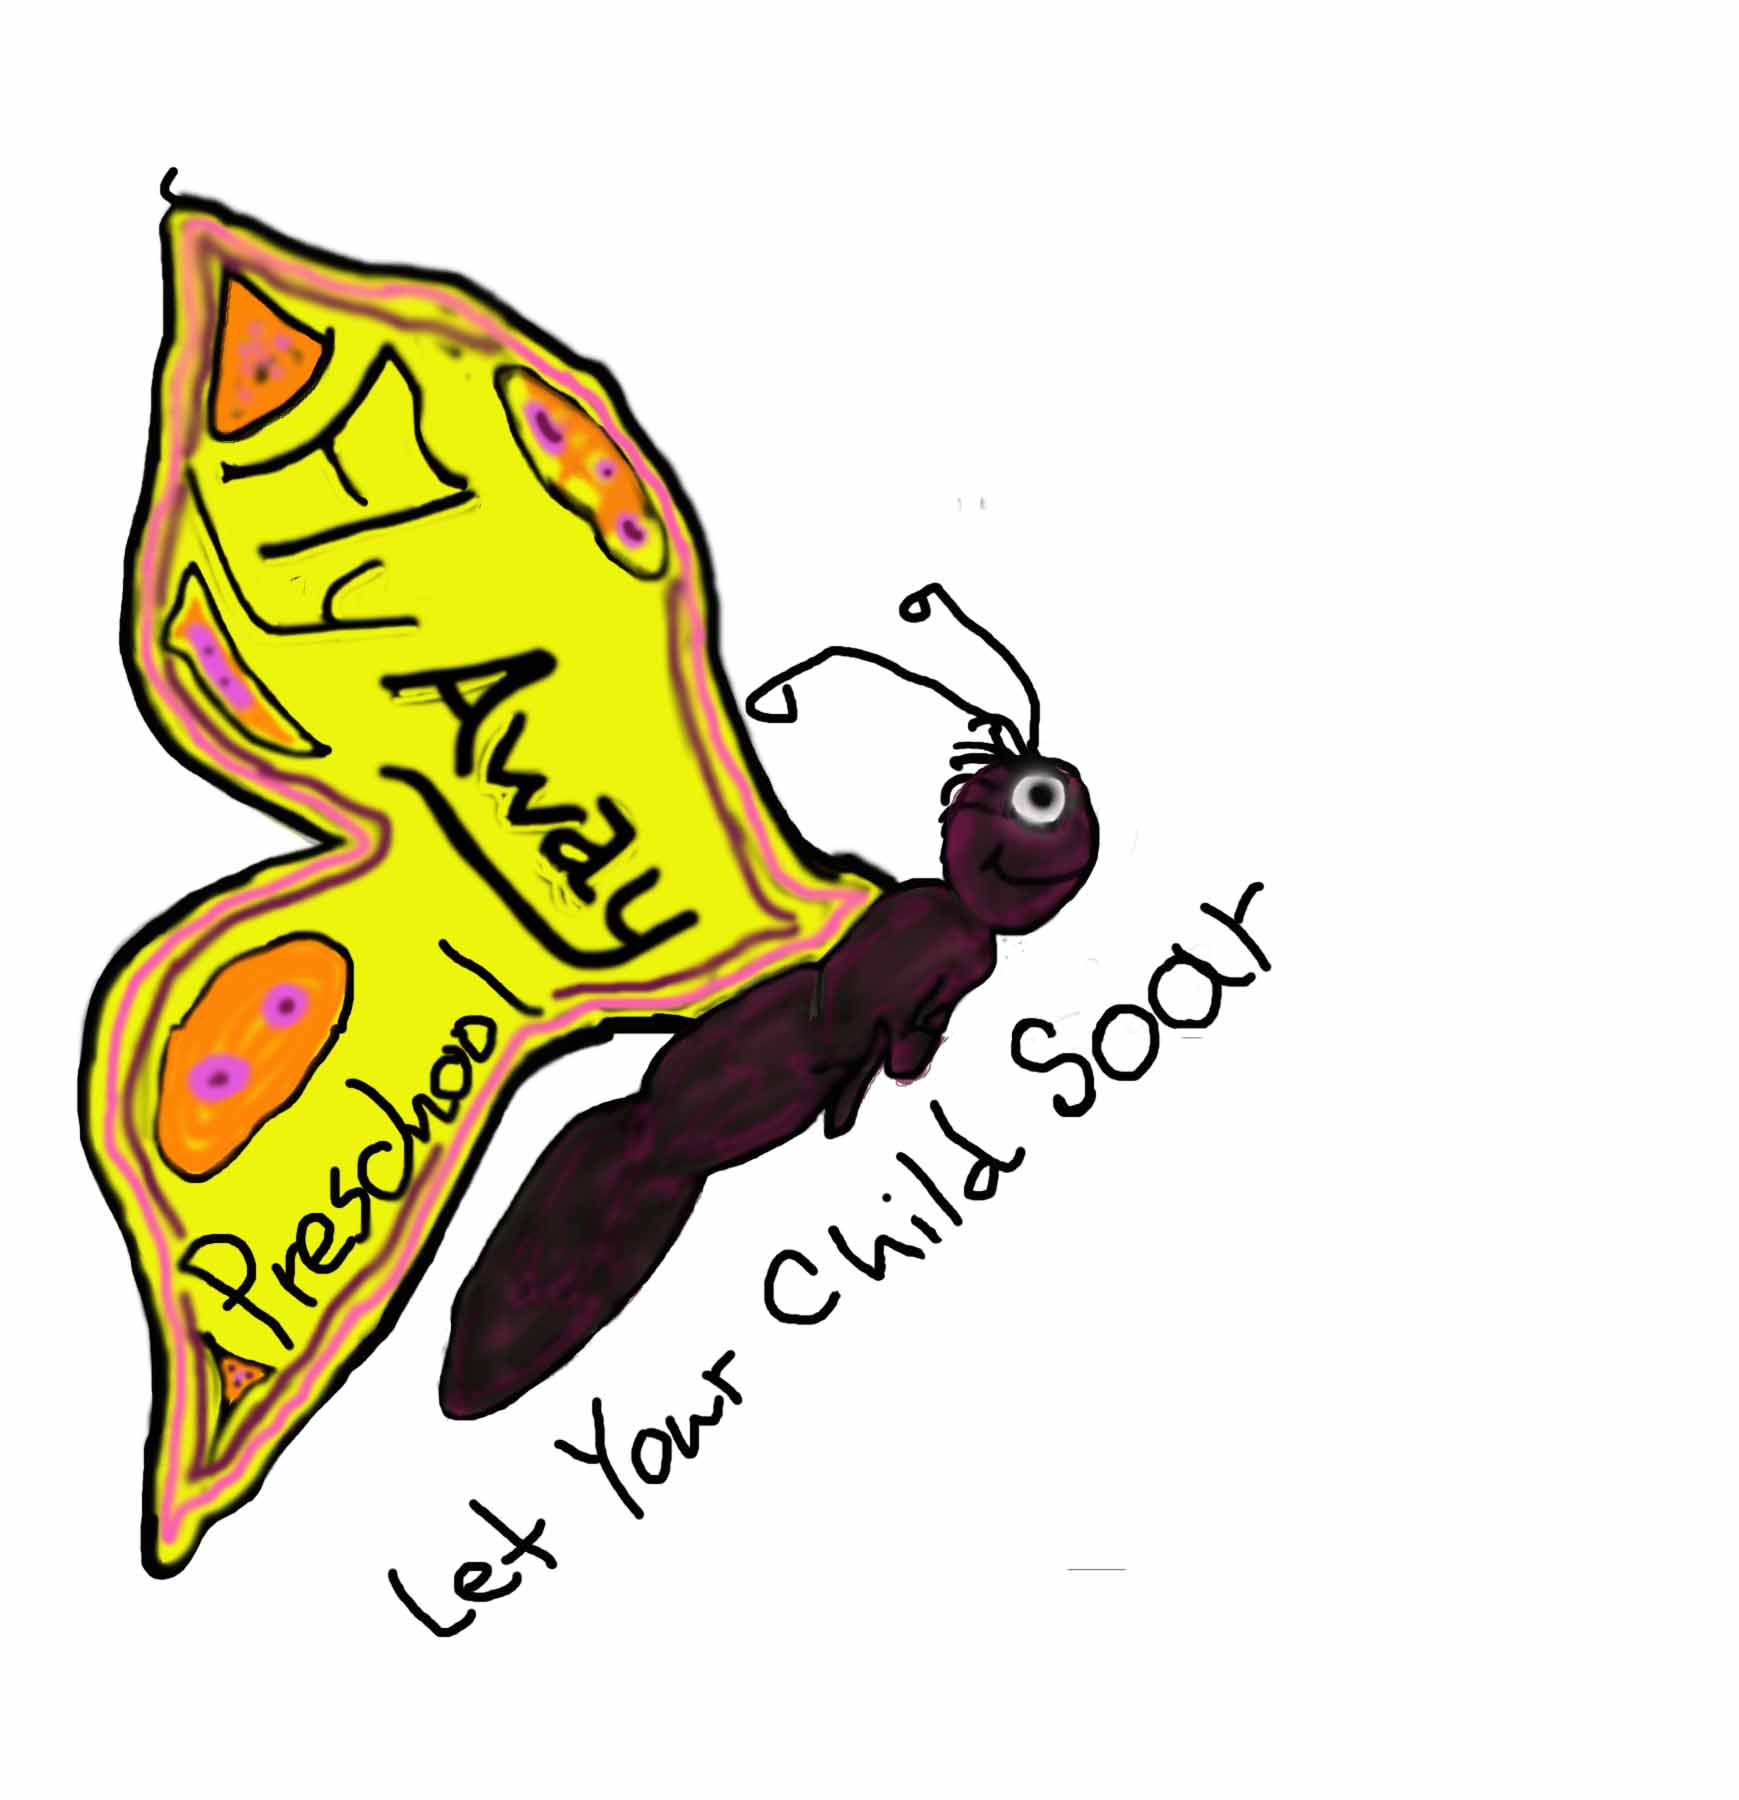 Fly
Away
Preschool
Let Your Child Soar